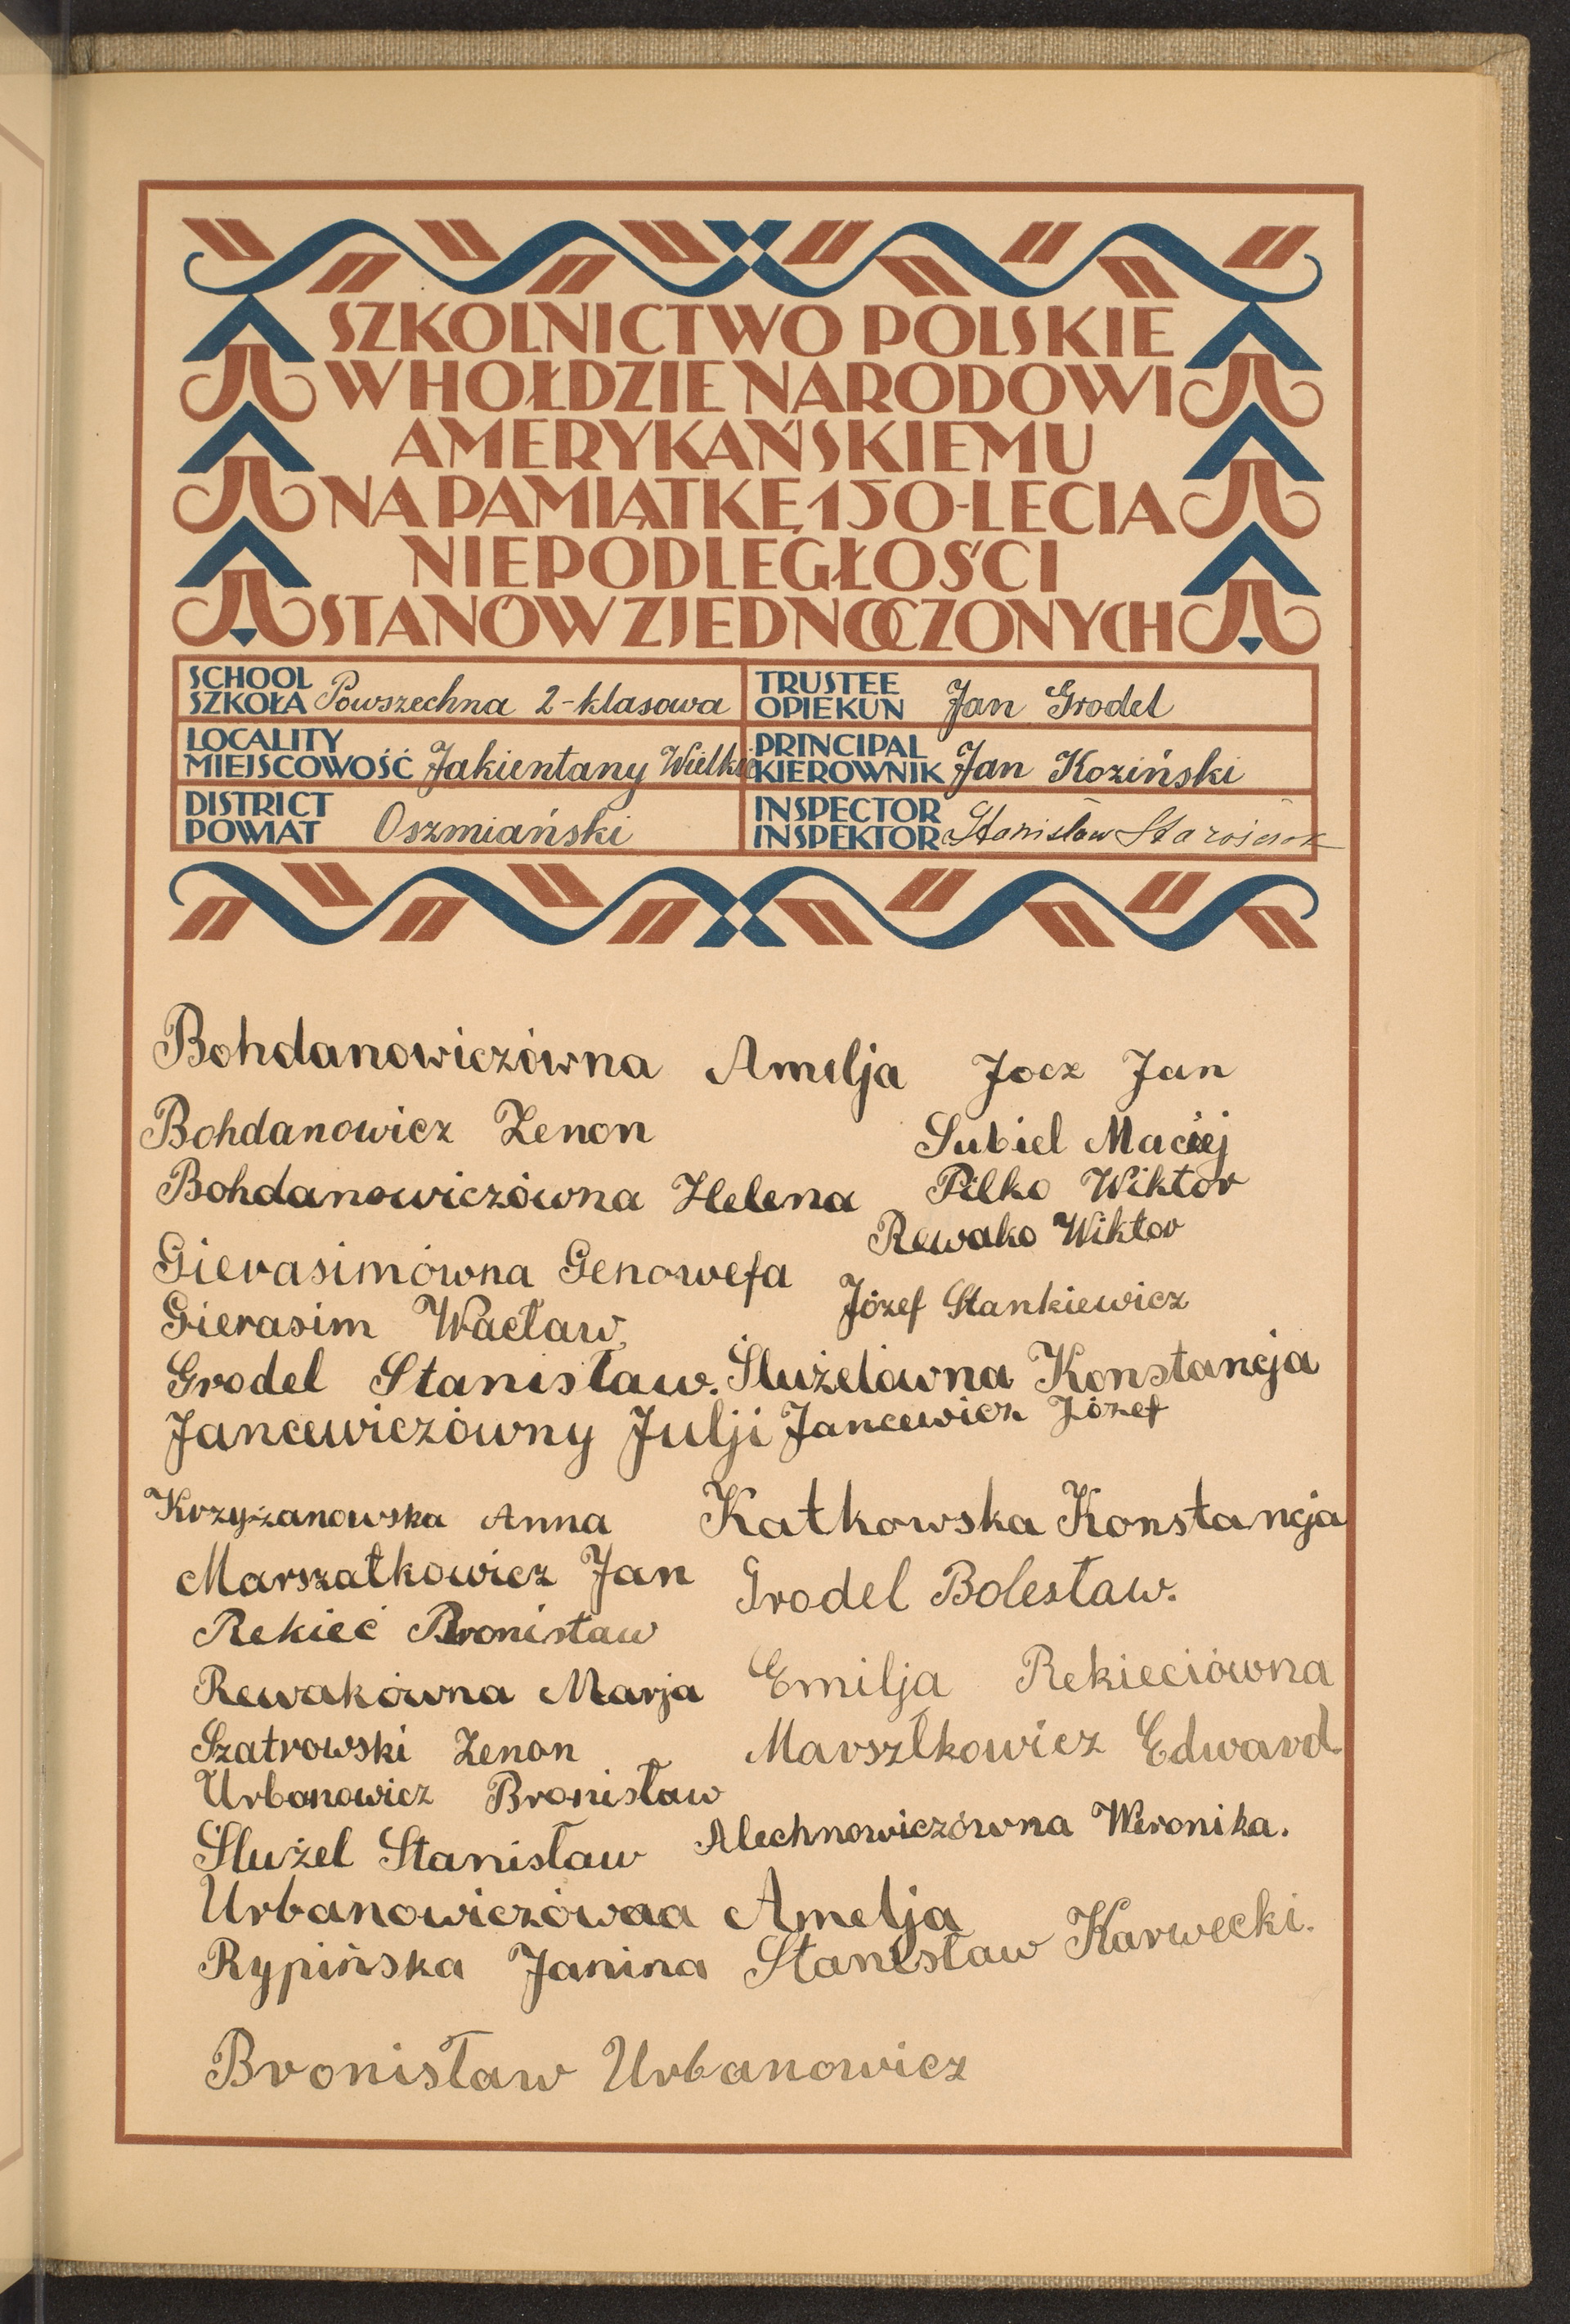 SZKOLNICTWO POLSKIE
W HOŁDZIE NARODOWI
AMERYKAŃSKIEMU
NA PAMIĄTKĘ 150-LECIA
NIEPODLEGŁOŚCI
STANÓW ZJEDNOCZONYCH
SCHOOL
SZKOŁA Powszechna 2-klasowa
TRUSTEE
OPIEKUN Jan Grodel
LOCALITY
MIEJSCOWOŚĆ Jakientany Wielkie
PRINCIPAL
KIEROWNIK Jan Koziński
DISTRICT
POWIAT Oszmiański
INSPECTOR
INSPEKTOR Stanisław Starościak
Bohdanowiczówna Amelja
Bohdanowicz Zenon
Bohdanowiczówna Helena
Gierasimówna Genowefa
Gierasim Wacław
Grodel Stanisław.
Jancewiczówny Julji
Krzyżanowska Anna
Marszałkowicz Jan
Rekieć Bronisław
Rewakówna Marja
Szatrowski Zenon
Urbanowicz Bronisław
Służel Stanisław
Urbanowiczówna Amelja
Rypińska Janina
Bronisław Urbanowicz
Jocz Jan
Subiel Maciej
Pilko Wiktor
Rewako Wiktor
Józef Stankiewicz
Służelówna Konstancja
Jancewicz Józef
Katkowska Konstancja
Grodel Bolesław.
Emilja Rekieciówna
Marszłkowicz Edward.
Alechnowiczówna Weronika.
Stanisław Karwecki.